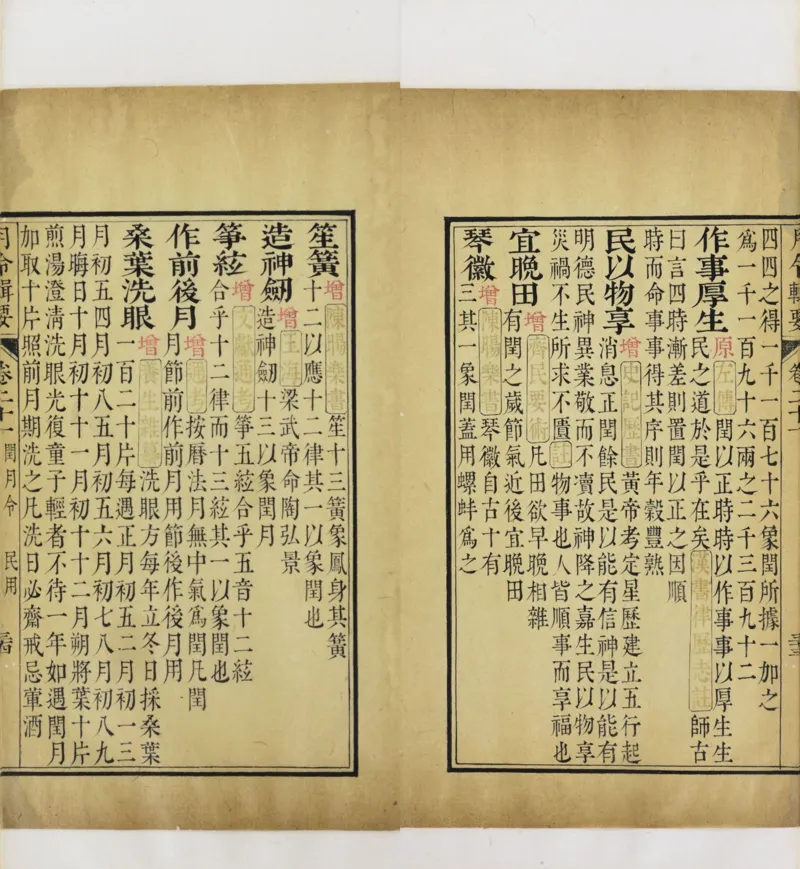 月令輯要 卷二十一
四四之得一千一百七十六象閏所據一加之
為一千一百九十六兩之二千三百九十二
作事厚生 原 左傳 閏以正時時以作事事以厚生生
民之道於是乎在矣 漢書律歷志註 師古
曰言四時漸差則置閏以正之因順
時而命事事得其序則年穀豐熟
民以物享 增 史記歷書 黃帝考定星歷建立五行起
消息正閏餘民是以能有信神是以能有
明德民神異業敬而不瀆故神降之嘉生民以物享
災禍不生所求不匱 註 物事也人皆順事而享福也
宜晚田 增 齊民要術 凡田欲早晚相雜
有閏之歲節氣近後宜晚田
琴徽 增 陳暘樂書 琴徽自古十有
三其一象閏蓋用螺蚌為之
笙簧 增 陳暘樂書 笙十三簧象鳳身其簧
十二以應十二律其一以象閏也
造神劒 增 玉海 梁武帝命陶弘景
造神劒十三以象閏月
箏絃 增 文獻通考 箏五絃合乎五音十二絃
合乎十二律而十三絃其一以象閏也
作前後月 增 按曆法月無中氣為閏凡閏
月節前作前月用節後作後月用
桑葉洗眼 增 養生雜纂 洗眼方每年立冬日採桑葉
一百二十片每遇正月初五二月初一三
月初五四月初八五月初五六月初七八月初八九
月晦日十月初十十一月初十十二月朔將葉十片
煎湯澄清洗眼光復童子輕者不待一年如遇閏月
加取十片照前月期洗之凡洗日必齋戒忌葷酒
月令輯要 卷二十一 閏月令 民用